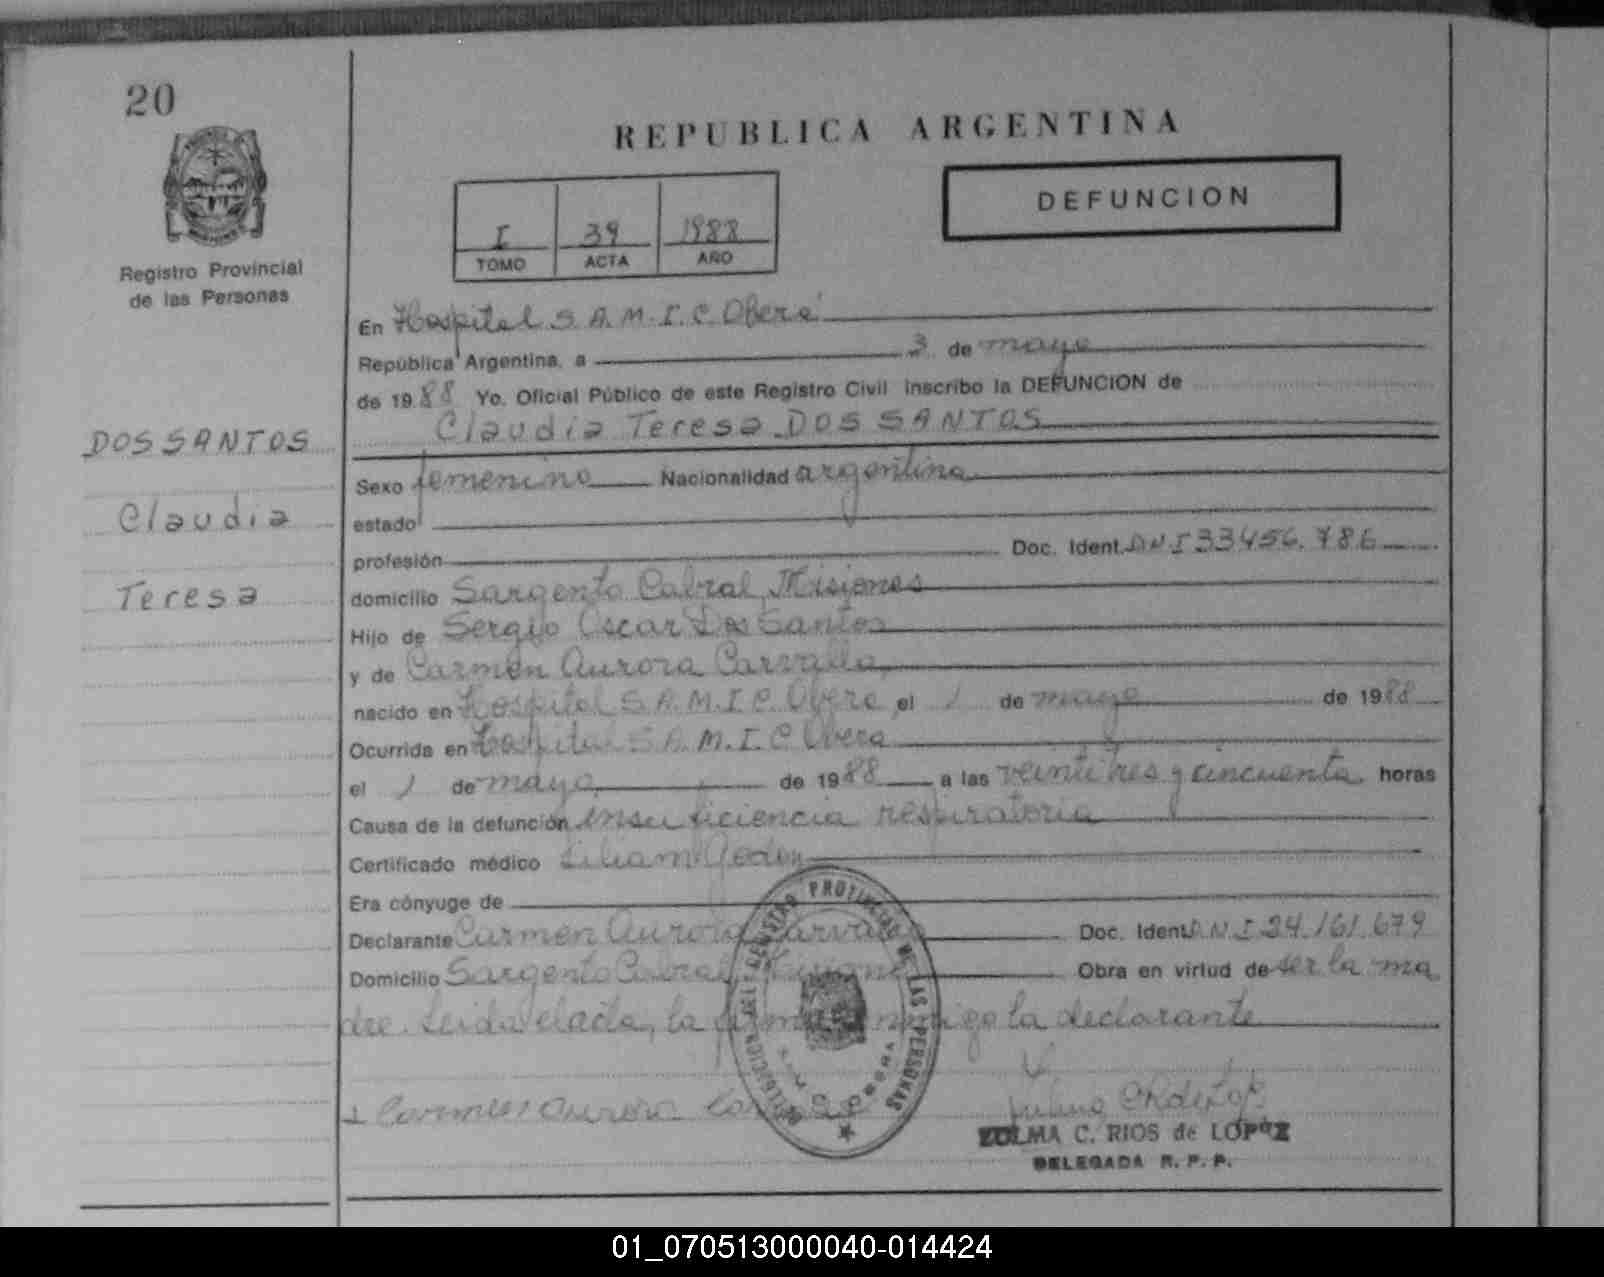 20
Registro Provincial
de las Personas
DOS SANTOS
Claudia
Teresa
REPUBLICA ARGENTINA
I 39 1988
TOMO ACTA AÑO
DEFUNCION
En Hospital S.A.M.I.C. Oberá
República Argentina, a 3 de mayo
de 1988 Yo, Oficial Público de este Registro Civil inscribo la DEFUNCION de
Claudia Teresa DOS SANTOS
Sexo femenino Nacionalidad argentina
estado
profesión Doc. Ident. DNI 33456.786
domicilio Sargento Cabral, Misiones
Hijo de Sergio Oscar Dos Santos
y de Carmen Aurora Carvallo,
nacido en Hospital S.A.M.I.C. Obera, el 1 de mayo de 1988
Ocurrida en Hospital S.A.M.I.C Obera
el 1 de mayo, de 1988 a las veintitres y cincuenta horas
Causa de la defunción insuficiencia respiratoria
Certificado médico
Era cónyuge de
Declarante Carmen Aurora Carvallo Doc. Ident. DNI 24.161.679
Domicilio Sargento Cabral, Misiones Obra en virtud de ser la ma
dre. Leida el acta, la firma conmigo la declarante
Carmen Aurora
DELEGACION DEL REGISTRO PROVINCIAL DE LAS PERSONAS
ZULMA C. RIOS de LOPEZ
DELEGADA R. P. P.
01_070513000040-014424